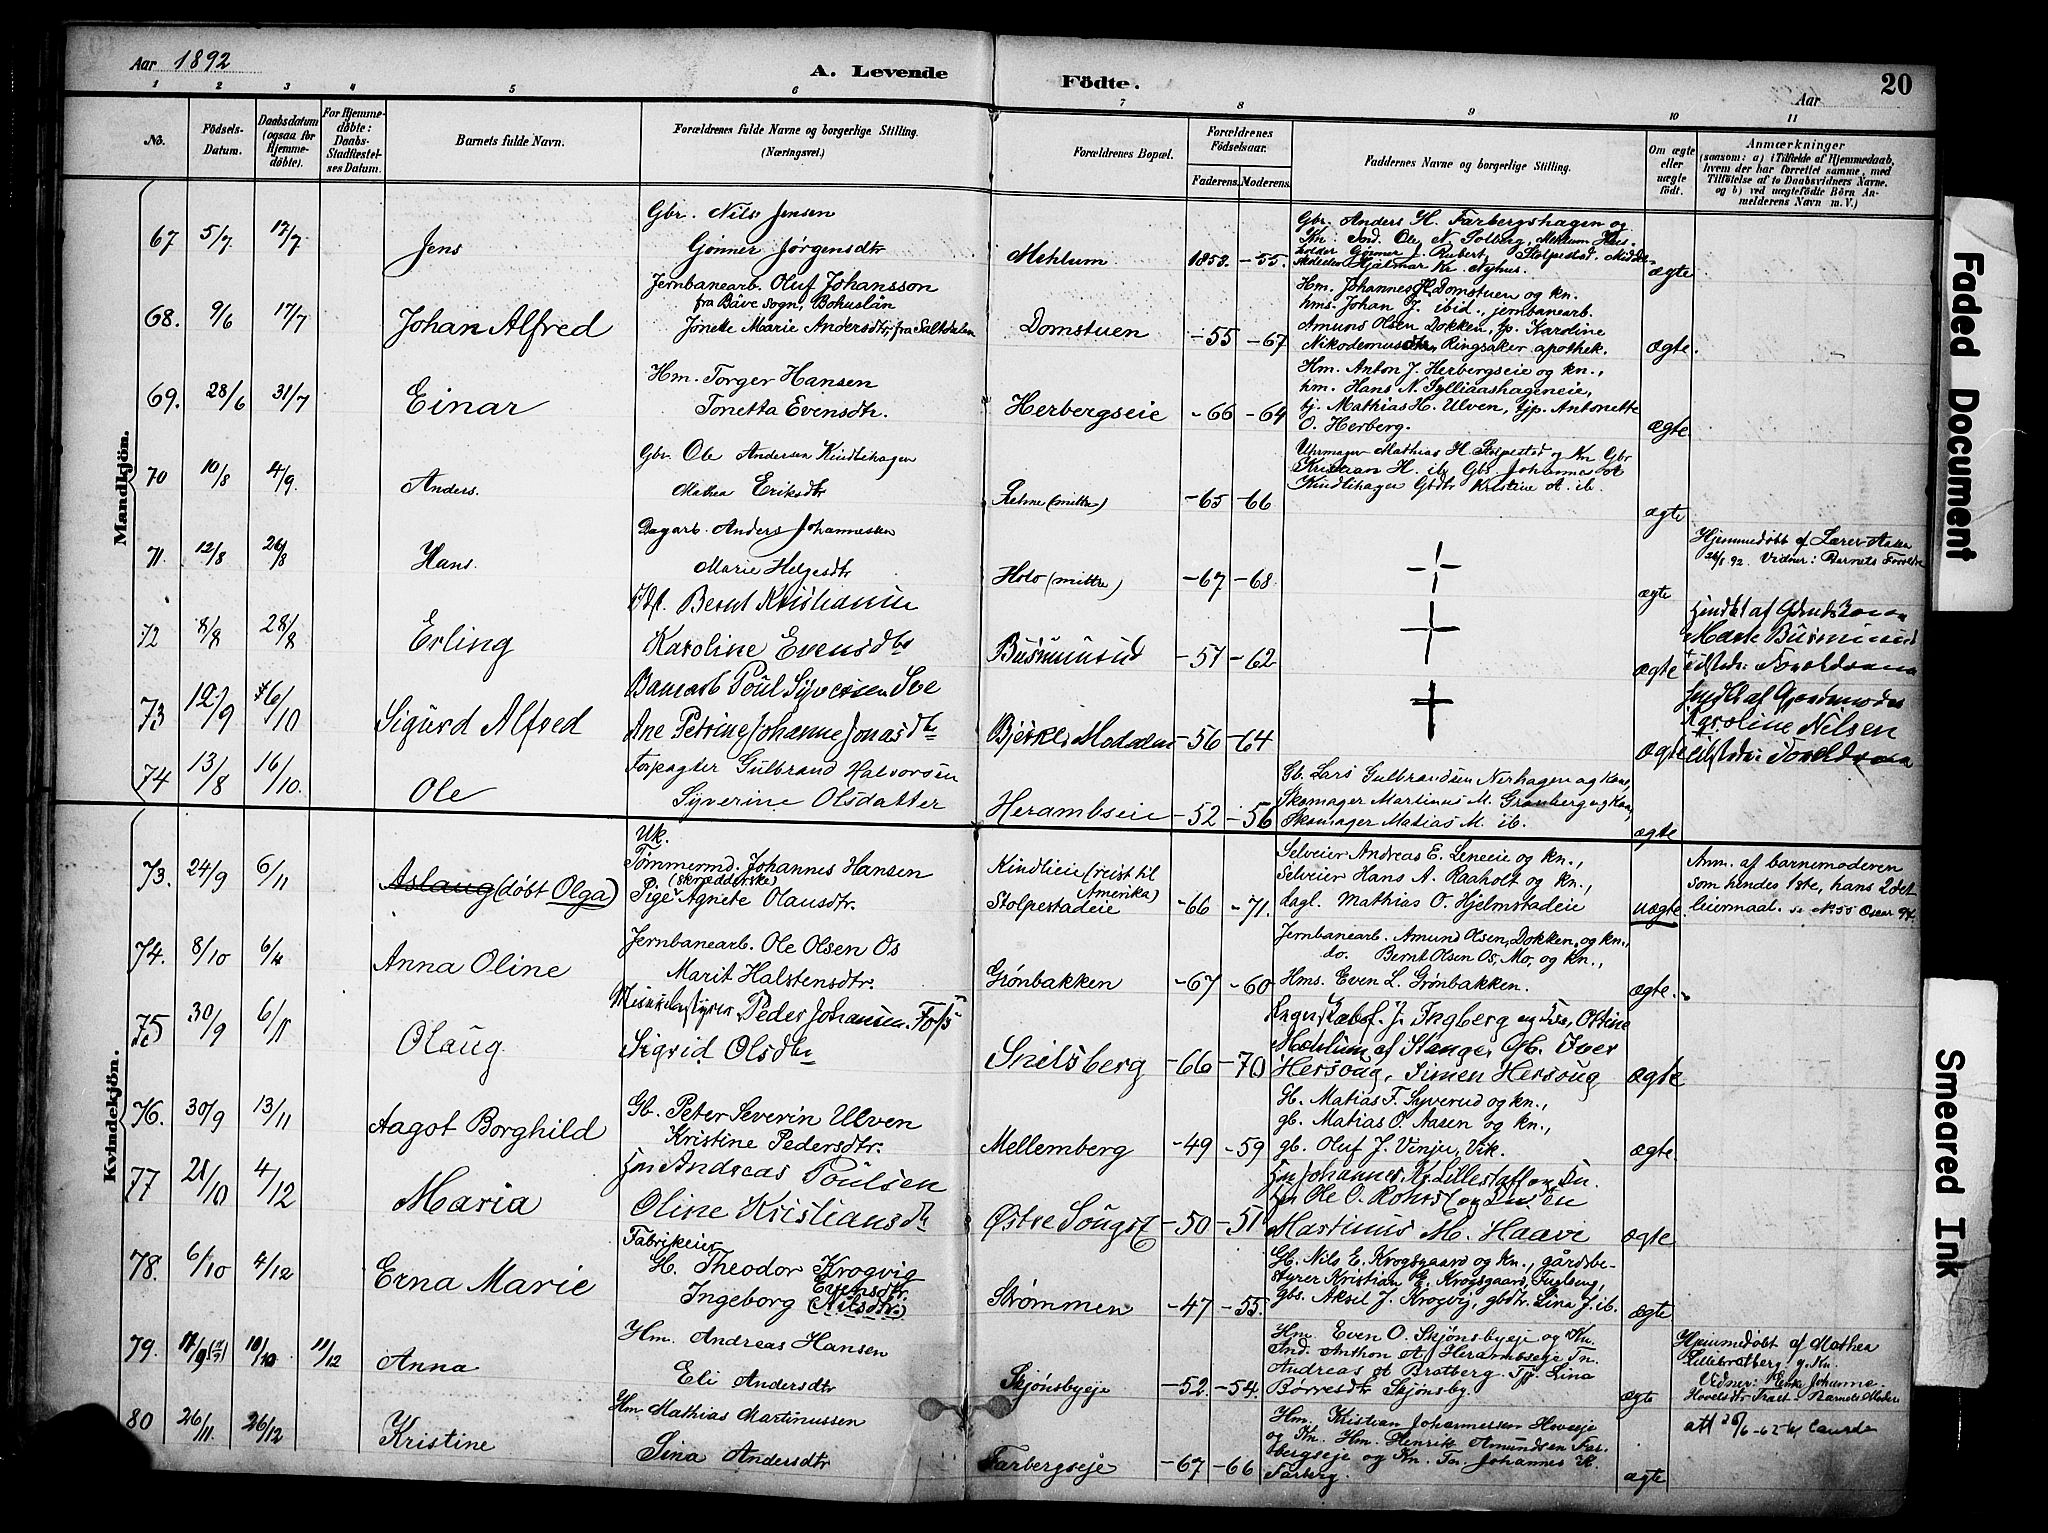 Aar 1892
A. Levende
Födte.
Aar
20
1 2 3 4 5 6 7 8 9 10 11
No.
Födsels-
Datum.
Daabsdatum
(ogsaa for
Hjemme-
døbte).
For Hjemme-
døbte:
Daabs-
Stadfæstel-
ses Datum.
Barnets fulde Navn.
Forældrenes fulde Navne og borgerlige Stilling.
(Næringsvei.)
Forældrenes Bopæl.
Forældrenes
Födselsaar.
Faderens. Moderens.
Faddernes Navne og borgerlige Stilling.
Om ægte
eller
uægte
födt.
Anmærkninger
(saasom: a) i Tilfælde af Hjemmedaab,
hvem der har forrettet samme, med
Tilføielse af to Daabsvidners Navne.
og b) ved uægtefödte Börn An-
melderens Navn m. V.)
Mandkjön.
67 5/7 17/7 Jens
Gbr. Nils Jensen
Gønner Jørgensdtr
Mehlum 1853. -55.
Gbr. Anders H. Farbergshagen og
Kn. Ind. Ole N. Solberg, Mehlum
Hjalmar Kr. Nyhus.
ægte
68. 9/6 17/7 Johan Alfred
Jernbanearb. Oluf Johansson
fra Bäve sogn, Bohuslän
Jonette Marie Andersdtr, fra Saltdalen
Domstuen -55 -67
Hm. Johannes H. Domstuen og kn.
hms. Johan J. ibid., jernbanearb.
Amuns Olsen Dokken, tp. Karoline
Nikodemusdtr, Ringsaker apothek.
ægte.
69. 28/6 31/7 Einar
Hm. Torger Hansen
Tonetta Evensdtr.
Herbergseie -66 -64
Hm. Anton J. Herbergseie og kn.,
hm. Hans N. Gylliaashageneie,
tj. Mathias H. Ulven, tjp. Antonette
O. Herberg.
ægte
70 10/8 4/9. Anders.
Gbr. Ole Andersen Kindlihagen
Mathea Eriksdtr
(mittre) -65 -66
Uhrmager Mathias H. Stolpestad og Kn Gbr
Kristian H. ib. Gbs. Johannes A
Kindlihagen Gbdtr Kristine A. ib.
ægte
71. 12/8 26/8 Hans.
Dagarb. Anders Johannessen
Marie Helgesdtr
Holo (mittre) -67 -68
ægte
Hjemmedøbt af Lærer Aasen
26/8 92. Vidner: Barnets Forældre
72 8/8 28/8 Erling
Bernt Kristiansen
Karoline Evensdtr
Busmunsud -57 -62
ægte
73 12/9 16/10 Sigurd Alfred
Banearb Poul Syversen Sve
Ane Petrine Johanne Jonasdtr
Bjerke Moddalen -56 -64
ægte
Karoline Nilsen
74 13/8 16/10. Ole
Forpagter Gulbrand Halvorsen
Syverine Olsdatter
Herambseie -52 -56
Gb. Lars Gulbrandsen Nerhagen og Kone,
Skomager Martinus M. Granberg og Kone,
Skomager Matias M. ib.
ægte
Kvindekjön.
73. 24/9 6/11 Aslaug (døbt Olga)
Uk.
Tømmermd. Johannes Hansen
(skrædderske)
Pige Agnete Olausdtr.
Kindlieie (reist til
Amerika)
Stolpestadeie -66 -71.
Selveier Andreas E. Leneeie og kn.,
Selveier Hans A. Raaholt og kn.,
dagl. Mathias O. Hjelmstadeie
uægte.
Anm. af barnemoderen
som hendes 1ste, hans 2det
leiermaal. se No 50 Oscar 94.
74. 8/10 6/11 Anna Oline
Jernbanearb. Ole Olsen Os
Marit Halstensdtr.
Grønbakken -67 -60
Jernbanearb. Amund Olsen, Dokken, og kn.,
do. Bernt Olsen Os, Mo, og kn.,
Hms. Even L. Grønbakken.
ægte.
75 30/9 6/11 Olaug
Peder Johansen Foss
Sigrid Olsdtr
Snilsberg -66 -70
J. Ingberg og Fru, Ottine
Mæhlum af Stange, Gb. Iver
Hersoug, Simen Hersoug
ægte
76. 30/9 13/11 Aagot Borghild
Gb. Peter Severin Ulven
Kristine Pedersdtr.
Mellemberg -49 -59
Gb. Matias F. Syverud og kn.,
gb. Matias O. Aasen og kn.,
gb. Oluf J. Vinju, Vik.
ægte.
77 21/10 4/12 Maria
Hm Andreas Poulsen
Oline Kristiansdtr
Østre Sougst -50 -51
Hm Johannes Kr. Lillestaff og Kn.
Hm Ole O. Rohrst og
Martinus M. Haave
ægte
78. 6/10 4/12 Erna Marie
Fabrikeier
Gb. Theodor Krogvig
Evensdtr.
Ingeborg (Nilsdtr.)
Strømmen -47 -55.
Gb. Nils E. Krogsgaard og kn., gårdsbe-
styrer Kristian E. Krogsgaard, Fuglseng,
gbs. Aksel J. Krogvig, gbdtr. Lina J. ib.
ægte
79. 17/9 10/10 11/12 Anna
Hm. Andreas Hansen
Eli Andersdtr
Skjønsbyeje -52. -54.
Hm. Even O. Skjønsbyeje og Kn.
Ind. Anthon A. Herambseje Tn.
Andreas Bratberg. Tp. Lina
Børresdtr Skjønsby.
ægte
Hjemmedøbt af Mathea
Lillebratberg g. Kn.
Vidner: Enke Johanne
Hovelsdtr Barnets Moder
80 26/11. 26/12 Kristine
Hm Mathias Martinussen
Sina Andersdtr
Farbergseje -67 -66
Hm. Kristian Johannessen Hoveeje
og Kn. Hm. Henrik Amundsen Far-
bergseje og Kn. Tn. Johannes K.
Farberg.
ægte
att 26/6 -62
Faded Document
Smeared Ink